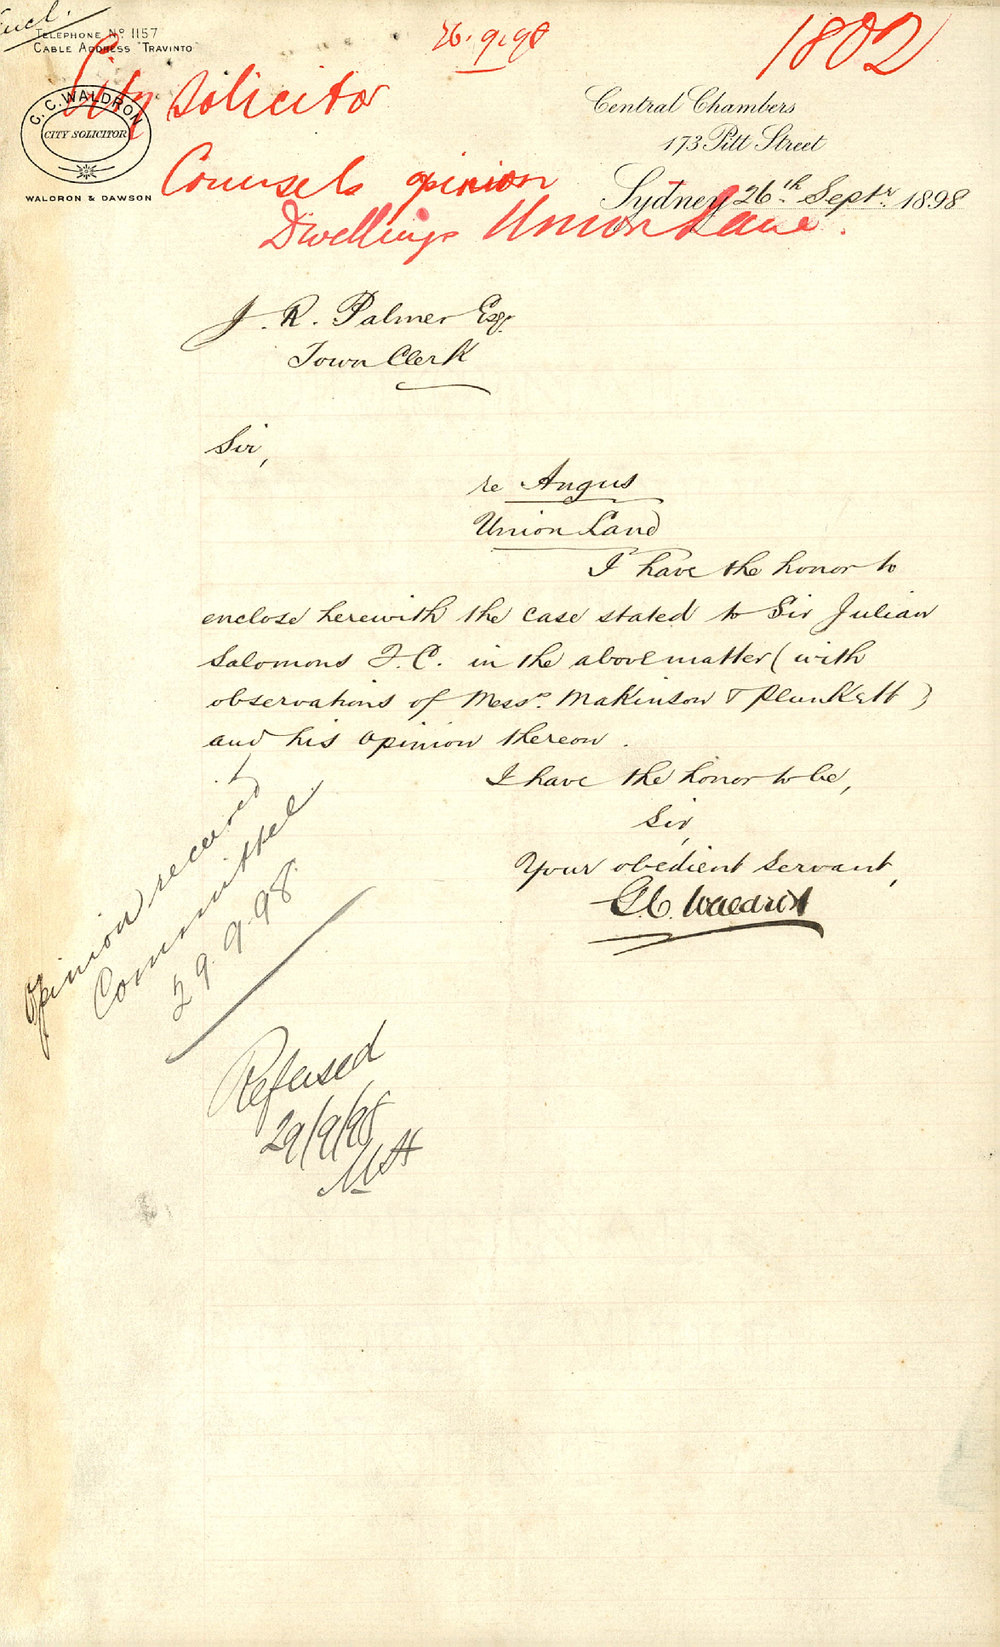 Encl.
TELEPHONE No 1157
CABLE ADDRESS "TRAVINTO"
26.9.98
1802
City Solicitor
C.C. WALDRON
CITY SOLICITOR
WALDRON & DAWSON
Central Chambers
173 Pitt Street
Counsels opinion
Sydney 26th Septr. 1898
Dwellings Union Lane.
J. R. Palmer Esqr
Town Clerk
Sir,
re Angus
Union Land
I have the honor to
enclose herewith the case stated to Sir Julian
Salomons Q.C. in the above matter (with
observations of Messrs. Makinson & Plunkett)
and his opinion thereon.
I have the honor to be,
Sir,
Your obedient Servant,
C.C. Waldron
Opinion received
Committee
29.9.98.
Refused
29/9/98